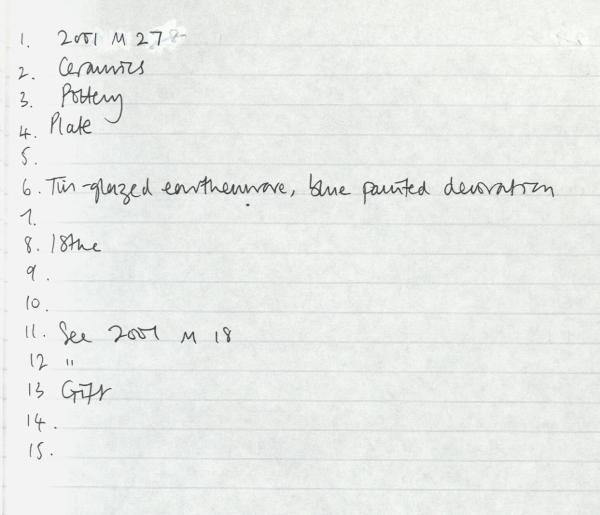 1. 2001 M 27
2. Ceramics
3. Pottery
4. Plate
5.
6. Tin-glazed earthenware, blue painted decoration
7.
8. 18thc
9.
10.
11. See 2001 M 18
12 "
13 Gift
14.
15.